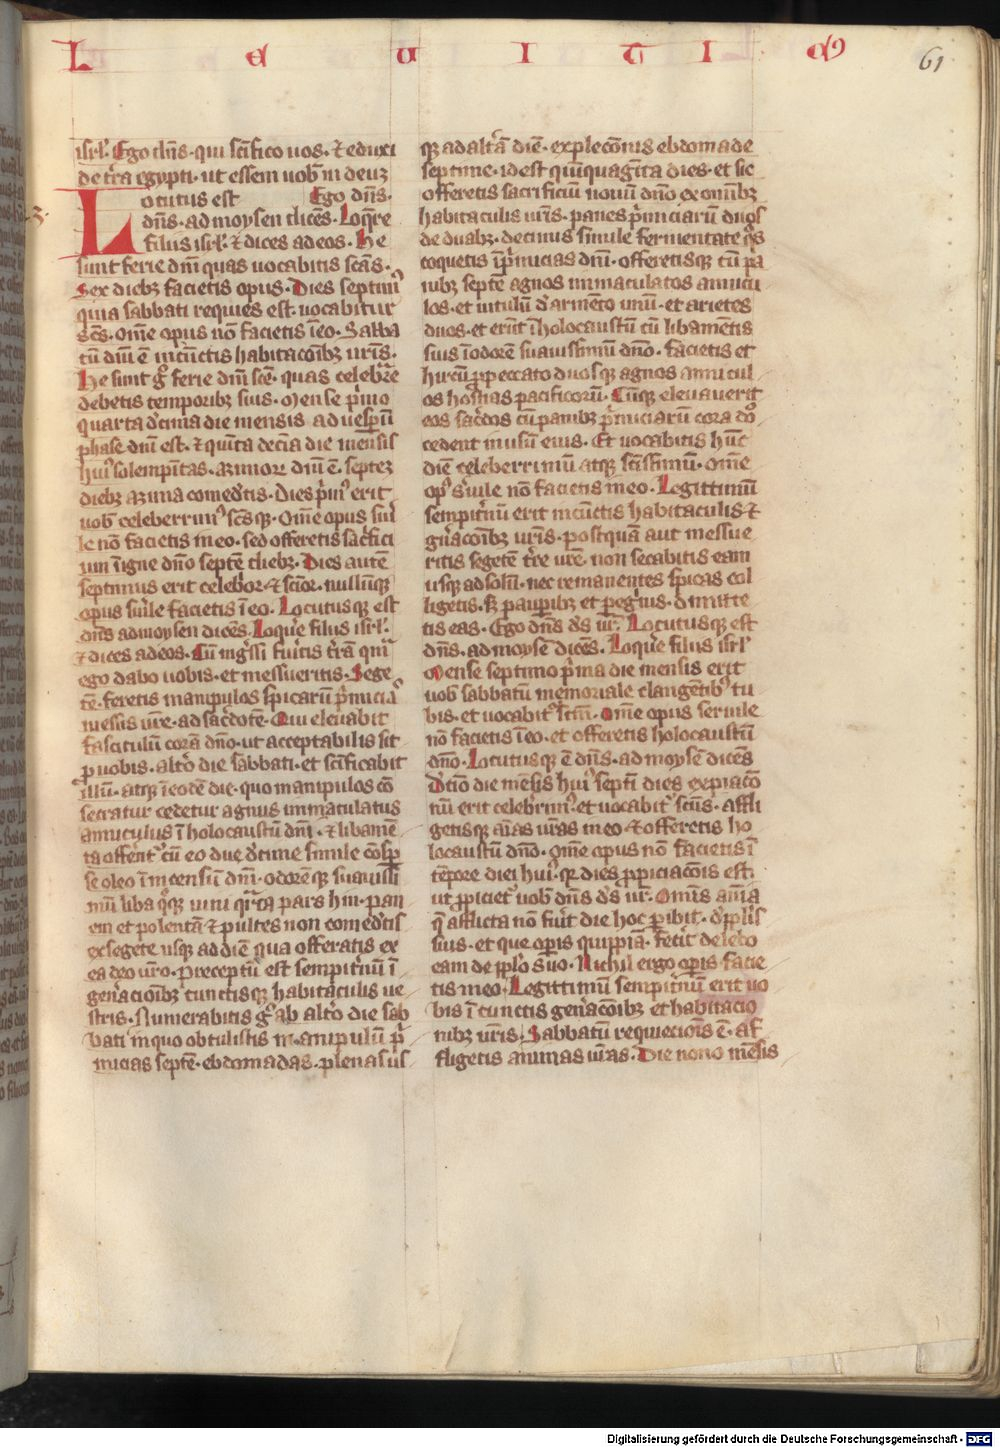 L e u i t i c9
61
isrl'. Ego dn̄s. qui sc̄ifico uos. & eduxi
de t̄ra egypti. ut essem uob̄ in deuʒ
Locutus est Ego dn̄s.
dn̄s. ad moysen dicēs. Loq̄re
filiis isrl'. & dices ad eos. He
sunt ferie dn̄i quas uocabitis sc̄as.
Sex diebʒ facietis opus. Dies septim9
quia sabbati requies est. uocabitur
sc̄s. Om̄e opus nō facietis ī eo. Sabba
tū dn̄i ē in cūnctis habitac̄oibʒ ur̄is.
He sunt g° ferie dn̄i sc̄e. quas celebr̄e
debetis temporibʒ suis. Mense p̄mo
quarta d̄cima die mensis ad uesp̄um
phase dn̄i est. & quīta decīa die mensis
hui9 solempn̄tas. azimoꝝ dn̄i ē. septeʒ
diebʒ azima comed̄tis. Dies p̄m9 erit
uob̄ celeberrim9 sc̄sqʒ. Om̄e opus s̄ui
le nō facietis in eo. sed offeretis sac̄fici
um ī igne dn̄o septē diebʒ. Dies autē
septimus erit celeb̄or. & sc̄ior. nullūqʒ
opus s̄uile facietis ī eo. Locutusqʒ est
dn̄s ad moysen dicēs. Loq̄re filiis isrl'.
& dices ad eos. Cū inḡssi fu̓itis t̄rā qm̄
ego dabo uobis. et messueritis. Sege
tē. feretis manipulos spicarū p̄micias
messis ur̄e. ad sac̄dotē. Qui eleuabit
fasciculū corā dn̄o. ut acceptabilis sit
p̱ uobis. alt̄o die sabbati. et sc̄ificabit
illū. atqʒ ī eodē die. quo manipulos cō
secratur cedetur agnus immaculatus
anniculus ī holocaustū dn̄i. & libamē
ta offerēt' cū eo due d̄cime simile cōsp̱
se oleo ī incensū dn̄i. odorēqʒ suauissi
mū. liba q̊qʒ uini q̄rta pars hin. pan
em et polentā & pultes non comed̄tis
ex segete usqʒ ad diē qua offeratis ex
ea deo ur̄o. Preceptū est sempit̄nū ī
gen̄acionibʒ cunctisqʒ habitaculis ue
stris. Numerabitis g° ab alt̄o die sab
bati in quo obtulistis manipulū p̄
micias septē. ebdomadas. plenas us
qʒ ad alt̄ā diē. explec̄onis ebdomade
septime. id est quīquagīta dies. et sic
offeretis sacrificiū nouū dn̄o ex om̄ibʒ
habitaculis ur̄is. panes p̄miciarū duos
de duabʒ. decimis simile fermentate q̊s
coquetis ī p̄micias dn̄i. offeretisqʒ cū pa
nibʒ septē agnos immaculatos annicu
los. et uitulū d̄ armēto unū. et arietes
duos. et erūt ī holocaustū cū libamētis
suis ī odorē suauissimū dn̄o. facietis et
hircū p̱ peccato duosqʒ agnos annicul
os hostias pacificorū. Cūqʒ eleuauerit
eos sac̄dos cū panibʒ p̄miciarū cora do
cedent in usū eius. Et uocabitis hūc
diē celeberrimū atqʒ sc̄issimū. Om̄e
op9 s̄uile nō facietis in eo. Legittimū
sempit̄nū erit in cūctis habitaculis &
gn̄ac̄oibʒ ur̄is. postquā aut messue
ritis segetē t̄re ur̄e. non secabitis eam
usqʒ ad solū. nec remanentes spicas col
ligetis. sʒ paup̱ibʒ et peg̓nis. dimitte
tis eas. Ego dn̄s d̄s ur̄. Locutusqʒ est
dn̄s. ad moysē dicēs. Loq̄re filiis isrl'
Mense septimo p̄ma die mensis erit
uob̄ sabbatū memoriale clangētibʒ tu
bis. et uocabit' sc̄m. Om̄e opus seruile
nō facietis ī eo. et offeretis holocaustū
dn̄o. Locutusqʒ ē dn̄s. ad moysē dicēs
D̄cīo die mēsis hui9 septī dies expiac̄o
nū erit celeb̄rim9. et uocabit' sc̄us. affli
getisqʒ aīas ur̄as in eo & offeretis ho
locaustū dn̄o. Om̄e opus nō facietis ī
tēpore diei hui9. qr dies p̱piciac̄ois est.
ut p̱piciet' uob̄ dn̄s d̄s ur̄. Omīs anīa
q̄ afflicta nō fu̓it die hoc p̱ibit. d̄ pplīs
suis. et que op̱is quippiā. fec̄it delebo
eam de pplo suo. Nichil ergo op̱is facie
tis in eo. Legittimū sempit̄nū erit uo
bis ī cunctis gen̄ac̄oibʒ et habitacio
nibʒ ur̄is. Sabbatū requiec̄ois ē. af
fligetis animas ur̄as. Die nono mēsis
Digitalisierung gefördert durch die Deutsche Forschungsgemeinschaft - DFG